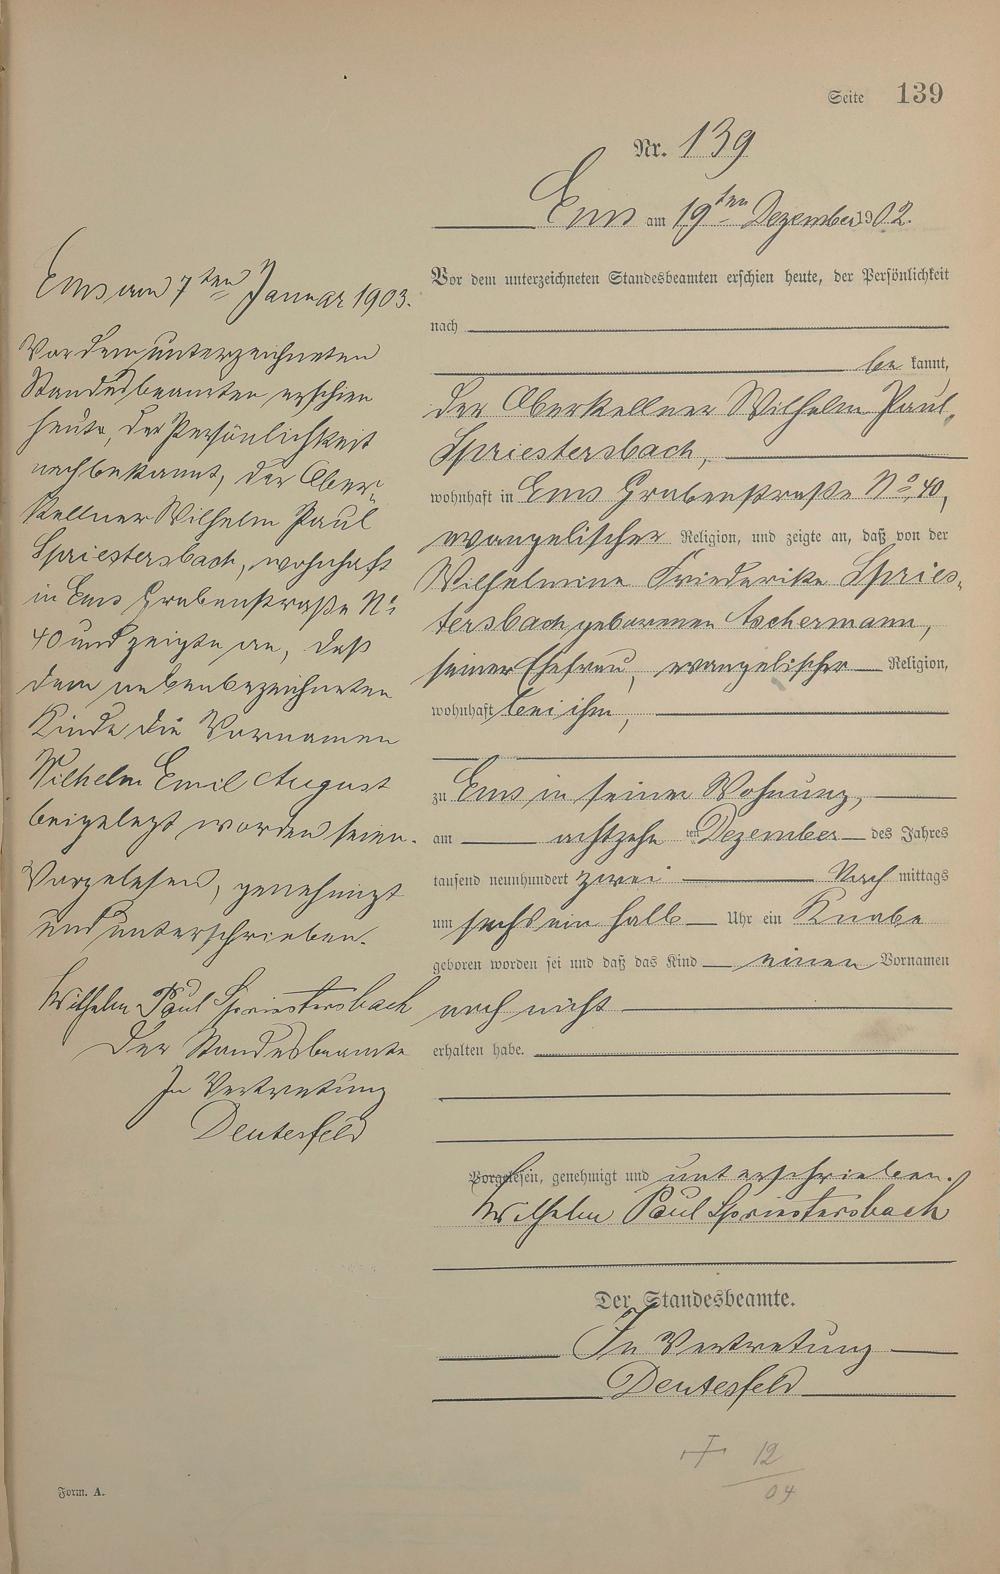 Seite 139
Nr. 139
Ems am 19ten Dezember 1902.
Vor dem unterzeichneten Standesbeamten erschien heute, der Persönlichkeit
nach
be kannt,
der Oberkellner Wilhelm Paul
Spriestersbach,
wohnhaft in Ems Grabenstraße No 40,
evangelischer Religion, und zeigte an, daß von der
Wilhelmine Friederike Spries-
tersbach geborenen Aschermann,
seiner Ehefrau, evangelischer Religion,
wohnhaft bei ihm,
zu Ems in seiner Wohnung,
am achtzehn ten Dezember des Jahres
tausend neunhundert zwei Nach mittags
um sechs ein halb Uhr ein Knabe
geboren worden sei und daß das Kind einen Vornamen
noch nicht
erhalten habe.
Vorgelesen, genehmigt und unterschrieben.
Wilhelm Paul Spriestersbach
Der Standesbeamte.
In Vertretung
Deutesfeld
12
04
Ems am 7ten Januar 1903.
Vor dem unterzeichneten
Standesbeamten erschien
heute, der Persönlichkeit
nach bekannt, der Ober-
kellner Wilhelm Paul
Spriestersbach, wohnhaft
in Ems Grabenstraße No
40 und zeigte an, daß
dem nebenbezeichneten
Kinde die Vornamen
Wilhelm Emil August
beigelegt worden seien.
Vorgelesen, genehmigt
und unterschrieben.
Wilhelm Paul Spriestersbach
Der Standesbeamte
In Vertretung
Deutesfeld
Form. A.